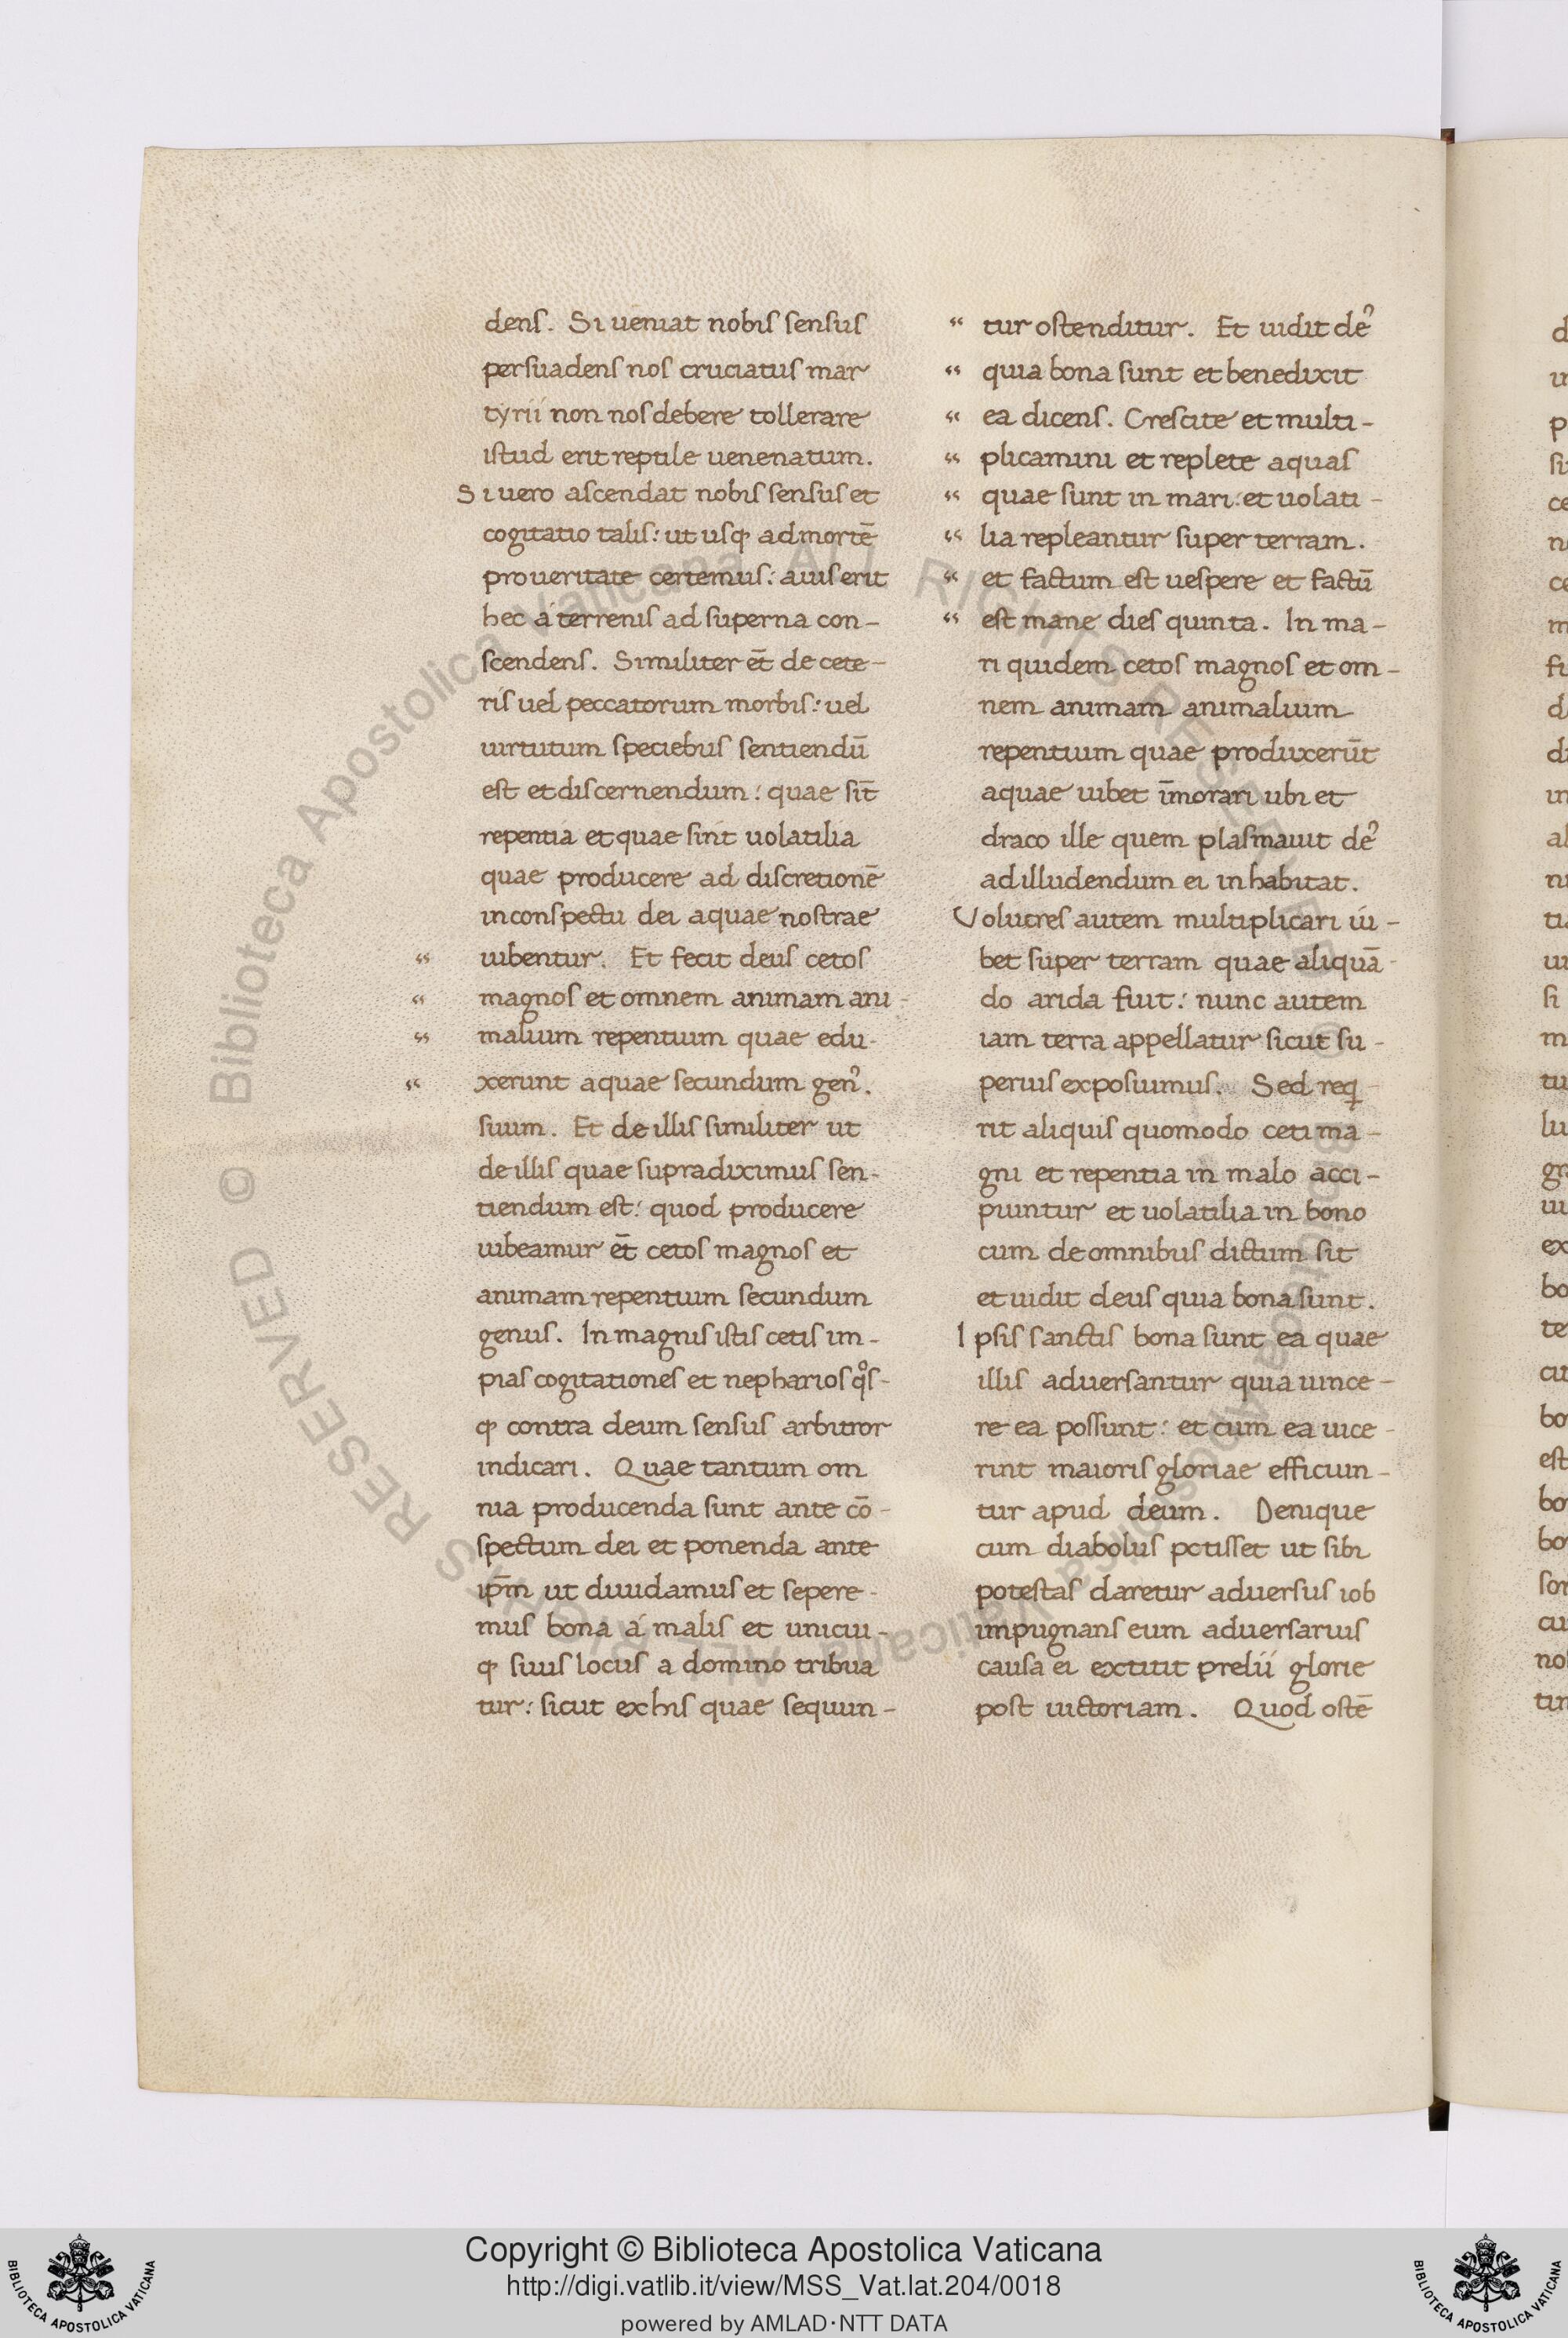 dens. Si ueniat nobis sensus
persuadens nos cruciatus mar
tyrii non nos debere tollerare
istud erit reptile uenenatum.
Si uero ascendat nobis sensus et
cogitatio talis: ut usqꝫ ad mortē
pro ueritate certemus: auis erit
hec á terrenis ad superna con-
scendens. Similiter et̄ de cete-
ris uel peccatorum morbis: uel
uirtutum speciebus sentiendū
est et discernendum: quae sīt
repentia et quae sint uolatilia
quae producere ad discretionē
in conspectu dei aquae nostrae
“ iubentur. Et fecit deus cetos
“ magnos et omnem animam ani-
“ malium repentium quae edu-
“ xerunt aquae secundum genꝰ.
suum. Et de illis similiter ut
de illis quae supra diximus sen-
tiendum est: quod producere
iubeamur et̄ cetos magnos et
animam repentium secundum
genus. In magnis istis cetis im-
pias cogitationes et nepharios qͦs-
qꝫ contra deum sensus arbitror
indicari. Quae tantum om
nia producenda sunt ante cō-
spectum dei et ponenda ante
ip̄m ut diuidamus et sepere-
mus bona á malis et unicui-
qꝫ suus locus a domino tribua
tur: sicut ex his quae sequun-
“ tur ostenditur. Et uidit deꝰ
“ quia bona sunt et benedixit
“ ea dicens. Crescite et multi-
“ plicamini et replete aquas
“ quae sunt in mari: et uolati-
“ lia repleantur super terram.
“ et factum est uespere et factū
“ est mane dies quinta. In ma-
ri quidem cetos magnos et om-
nem animam animalium
repentium quae produxerūt
aquae iubet īmorari ubi et
draco ille quem plasmauit deꝰ
ad illudendum ei inhabitat.
Volucres autem multiplicari iú-
bet super terram quae aliquā-
do arida fuit: nunc autem
iam terra appellatur sicut su-
perius exposuimus. Sed req-
rit aliquis quomodo ceti ma-
gni et repentia in malo acci-
piuntur et uolatilia in bono
cum de omnibus dictum sit
et uidit deus quia bona sunt.
Ipsis sanctis bona sunt ea quae
illis aduersantur quia uince-
re ea possunt: et cum ea uice-
rint maioris gloriae efficiun-
tur apud deum. Denique
cum diabolus potisset ut sibi
potestas daretur aduersus iob
impugnans eum aduersarius
causa ei extitit prelii glorie
post uictoriam. Quod ostē
Copyright © Biblioteca Apostolica Vaticana
http://digi.vatlib.it/view/MSS_Vat.lat.204/0018
powered by AMLAD·NTT DATA
BIBLIOTECA APOSTOLICA VATICANA
BIBLIOTECA APOSTOLICA VATICANA